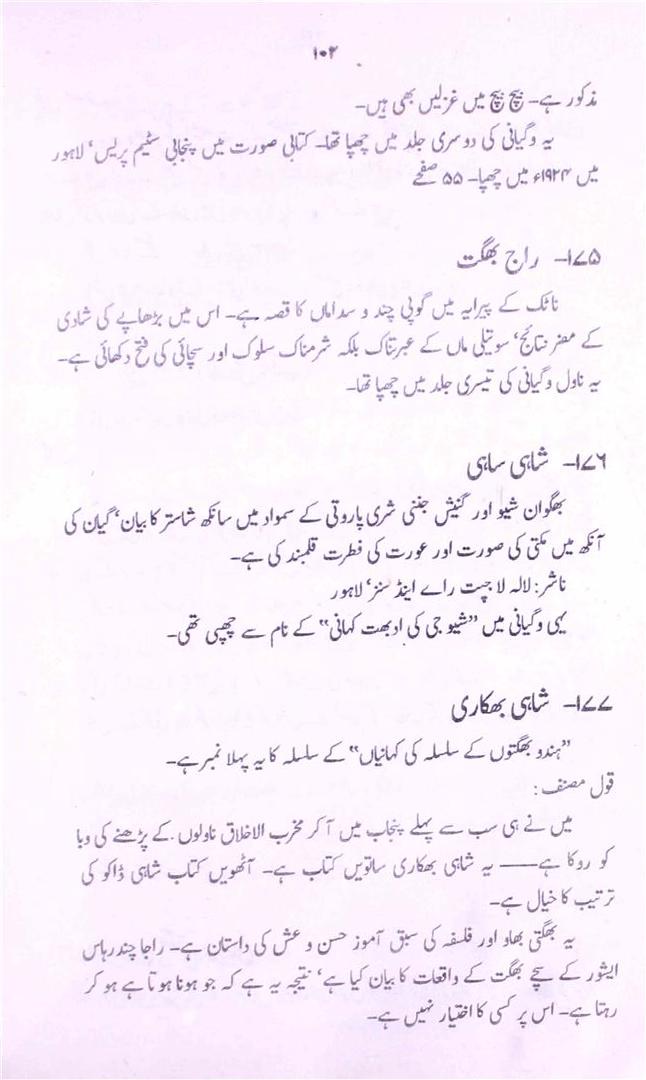 ۱۰۲
مذکور ہے۔ بیچ بیچ میں غزلیں بھی ہیں۔
یہ وگیانی کی دوسری جلد میں چھپا تھا۔ کتابی صورت میں پنجابی سٹیم پریس، لاہور
میں ۱۹۲۴ء میں چھپا۔ ۵۵ صفحے
۱۷۵۔ راج بھگت
ناٹک کے پیرایہ میں گوپی چند و سداماں کا قصہ ہے۔ اس میں بڑھاپے کی شادی
کے مضر نتائج، سوتیلی ماں کے عبرتناک بلکہ شرمناک سلوک اور سچائی کی فتح دکھائی ہے۔
یہ ناول وگیانی کی تیسری جلد میں چھپا تھا۔
۱۷۶۔ شاہی ساہی
بھگوان شیو اور گنیش جننی شری پاروتی کے سمواد میں سانکھ شاستر کا بیان، گیان کی
آنکھ میں مکتی کی صورت اور عورت کی فطرت قلمبند کی ہے۔
ناشر: لالہ لاجپت راے اینڈ سنز، لاہور
یہی وگیانی میں ”شیو جی کی ادبھت کہانی“ کے نام سے چھپی تھی۔
۱۷۷۔ شاہی بھکاری
”ہندو بھگتوں کے سلسلہ کی کہانیاں“ کے سلسلہ کا یہ پہلا نمبر ہے۔
قول مصنف:
میں نے ہی سب سے پہلے پنجاب میں آکر مخرب الاخلاق ناولوں کے پڑھنے کی وبا
کو روکا ہے —— یہ شاہی بھکاری ساتویں کتاب ہے۔ آٹھویں کتاب شاہی ڈاکو کی
ترتیب کا خیال ہے۔
یہ بھگتی بھاو اور فلسفہ کی سبق آموز حسن و عش کی داستان ہے۔ راجا چندرہاس
ایشور کے سچے بھگت کے واقعات کا بیان کیا ہے، نتیجہ یہ ہے کہ جو ہونا ہوتا ہے ہو کر
رہتا ہے۔ اس پر کسی کا اختیار نہیں ہے۔